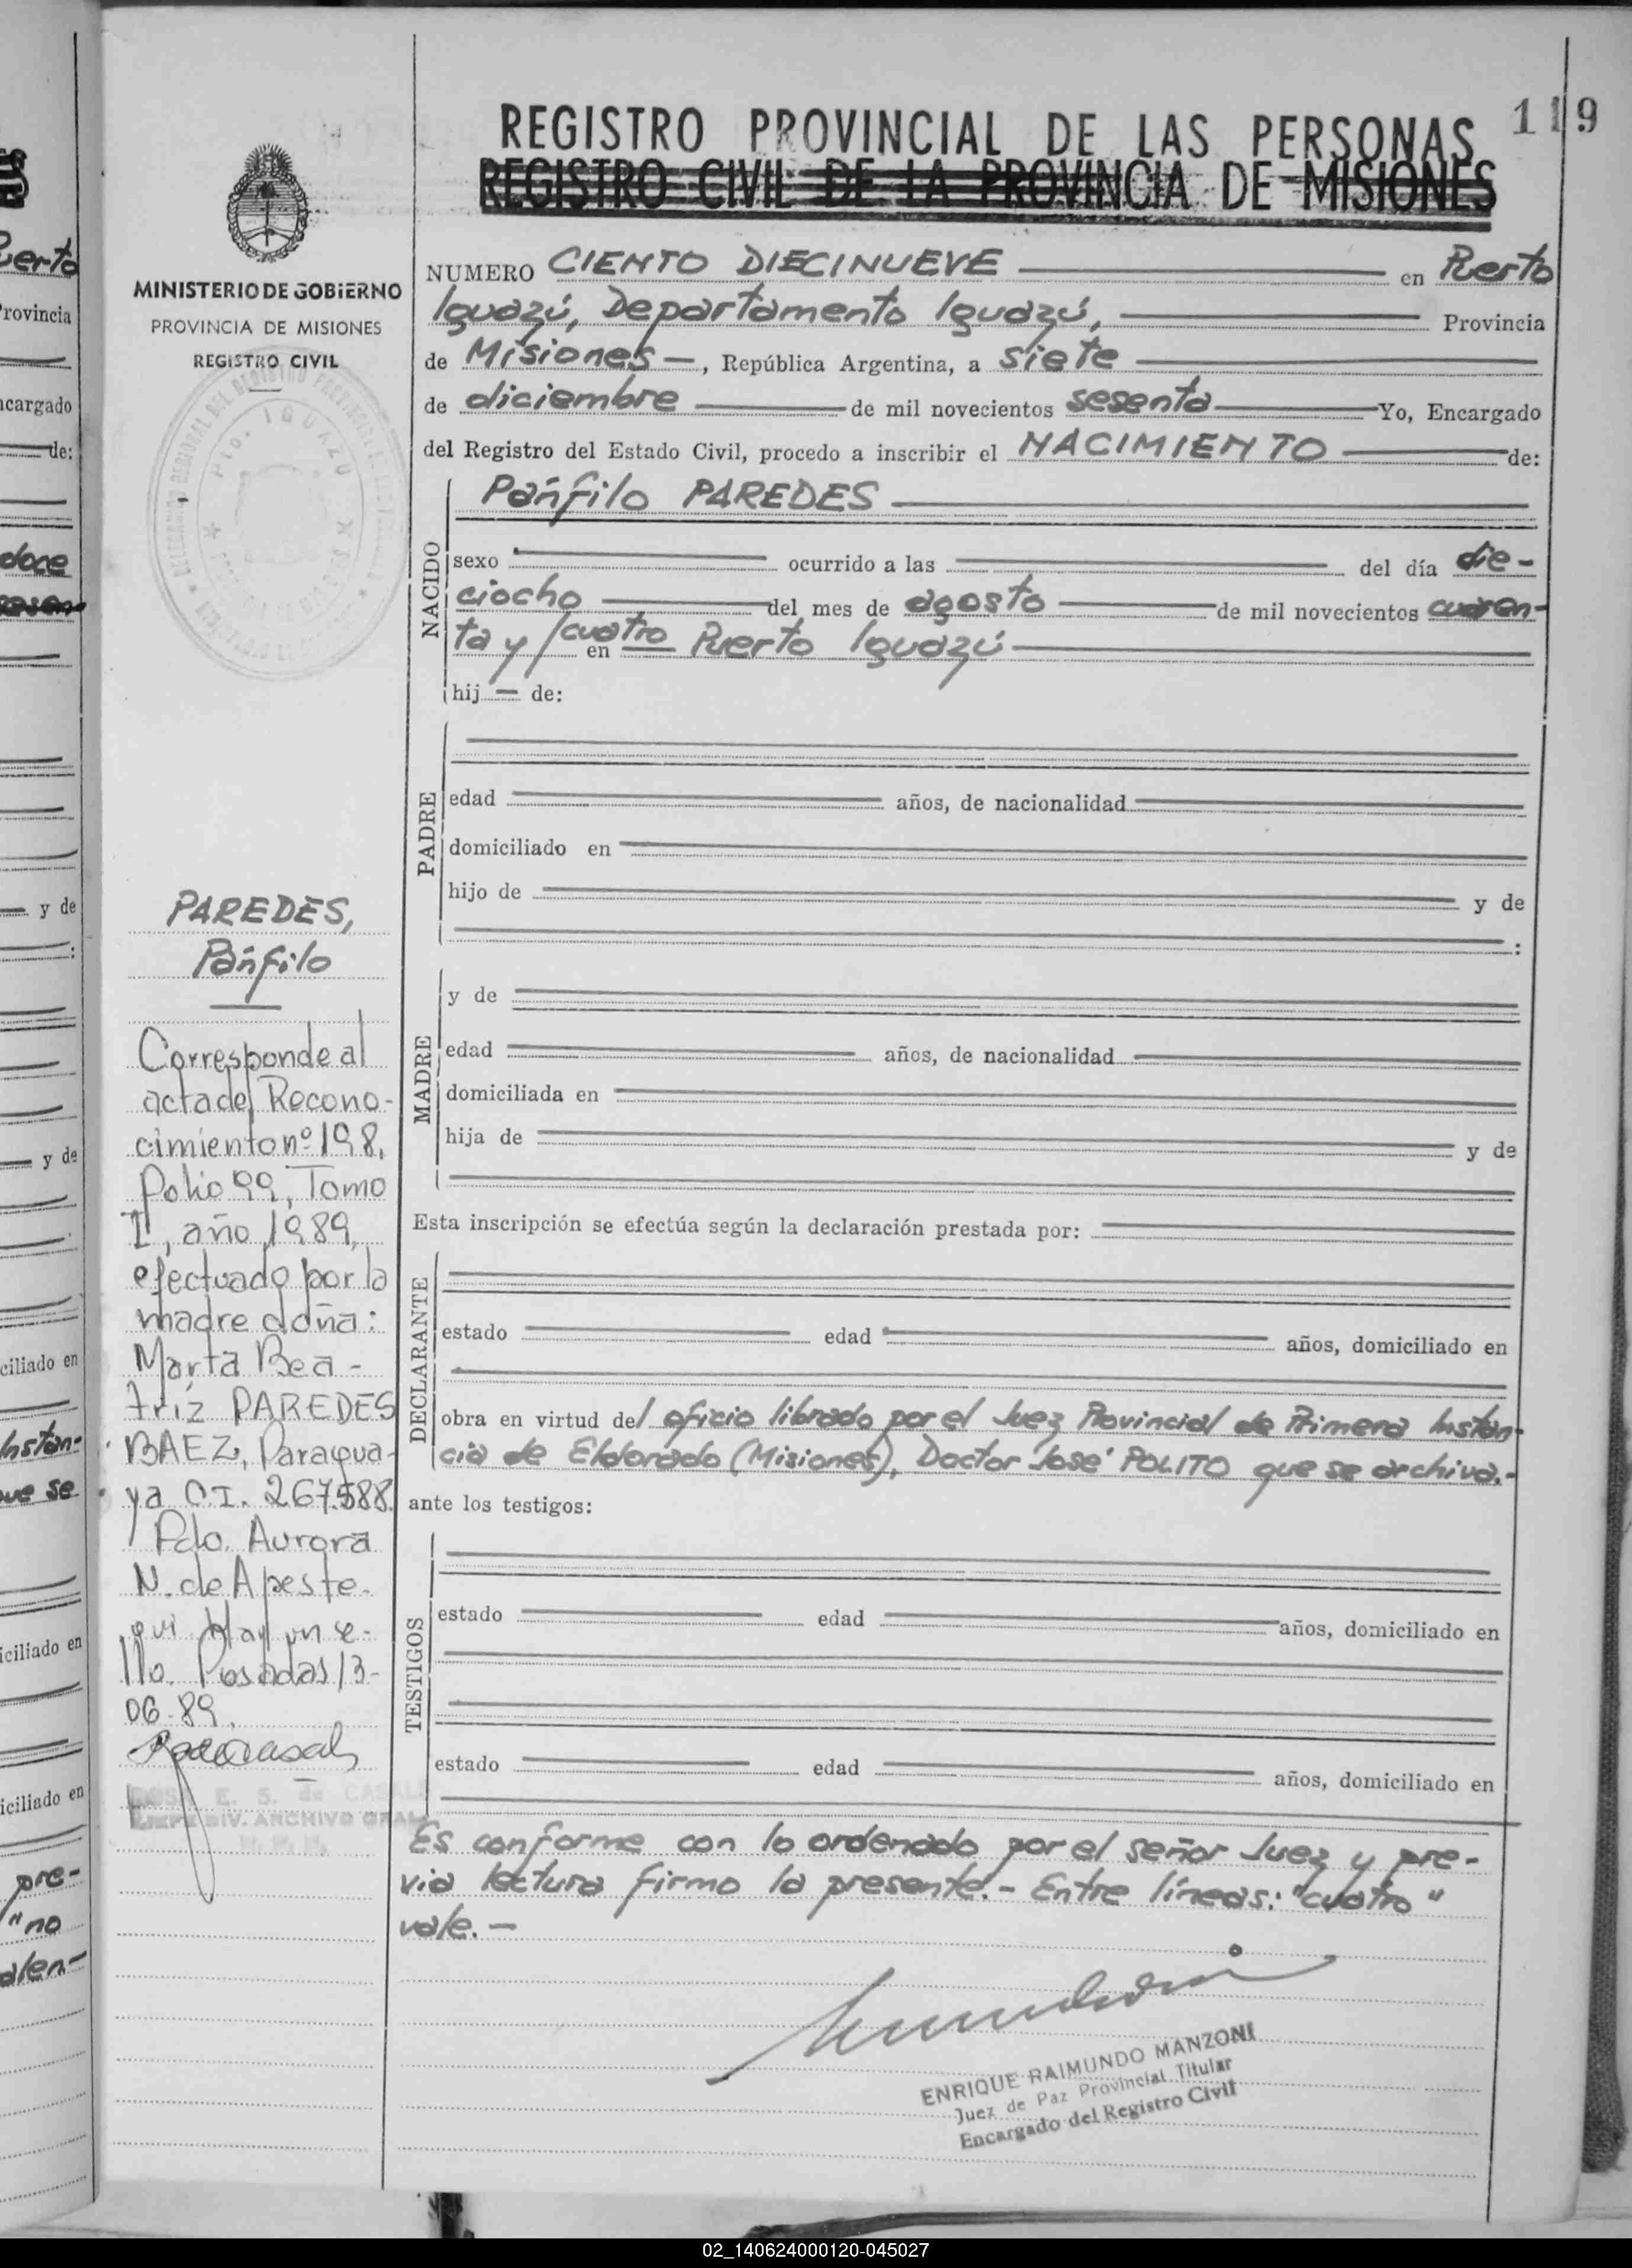 119
REGISTRO PROVINCIAL DE LAS PERSONAS
REGISTRO CIVIL DE LA PROVINCIA DE MISIONES
MINISTERIO DE GOBIERNO
PROVINCIA DE MISIONES
REGISTRO CIVIL
NUMERO CIENTO DIECINUEVE en Puerto
Iguazú, Departamento Iguazú, Provincia
de Misiones —, República Argentina, a siete
de diciembre de mil novecientos sesenta Yo, Encargado
del Registro del Estado Civil, procedo a inscribir el NACIMIENTO de:
NACIDO
Pánfilo PAREDES
sexo ocurrido a las del día die-
ciocho del mes de agosto de mil novecientos cuaren-
ta y / cuatro en Puerto Iguazú
hij — de:
PADRE
edad años, de nacionalidad
domiciliado en
hijo de y de
:
MADRE
y de
edad años, de nacionalidad
domiciliada en
hija de y de
Esta inscripción se efectúa según la declaración prestada por:
DECLARANTE
estado edad años, domiciliado en
obra en virtud del oficio librado por el Juez Provincial de Primera Instan-
cia de Eldorado (Misiones), Doctor José POLITO que se archiva.-
ante los testigos:
TESTIGOS
estado edad años, domiciliado en
estado edad años, domiciliado en
Es conforme con lo ordenado por el señor Juez y pre-
via lectura firmo la presente.- Entre líneas: "cuatro"
vale.-
ENRIQUE RAIMUNDO MANZONI
Juez de Paz Provincial Titular
Encargado del Registro Civil
PAREDES,
Pánfilo
Corresponde al
acta de Recono-
cimiento nº 198,
Folio 99, Tomo
I, año 1989,
efectuado por la
madre doña:
Marta Bea-
triz PAREDES
BAEZ, Paragua-
ya C.I. 267.588.
Fdo. Aurora
N. de Apeste-
gui Hay un se-
llo. Posadas 13-
06-89.
E. S. de CASALE
JEFE DIV. ARCHIVO GRAL
uerto
Provincia
ncargado
de:
doce
y de
:
y de
ciliado en
Instan-
que se
iciliado en
iciliado en
pre-
"no
alen-
02_140624000120-045027